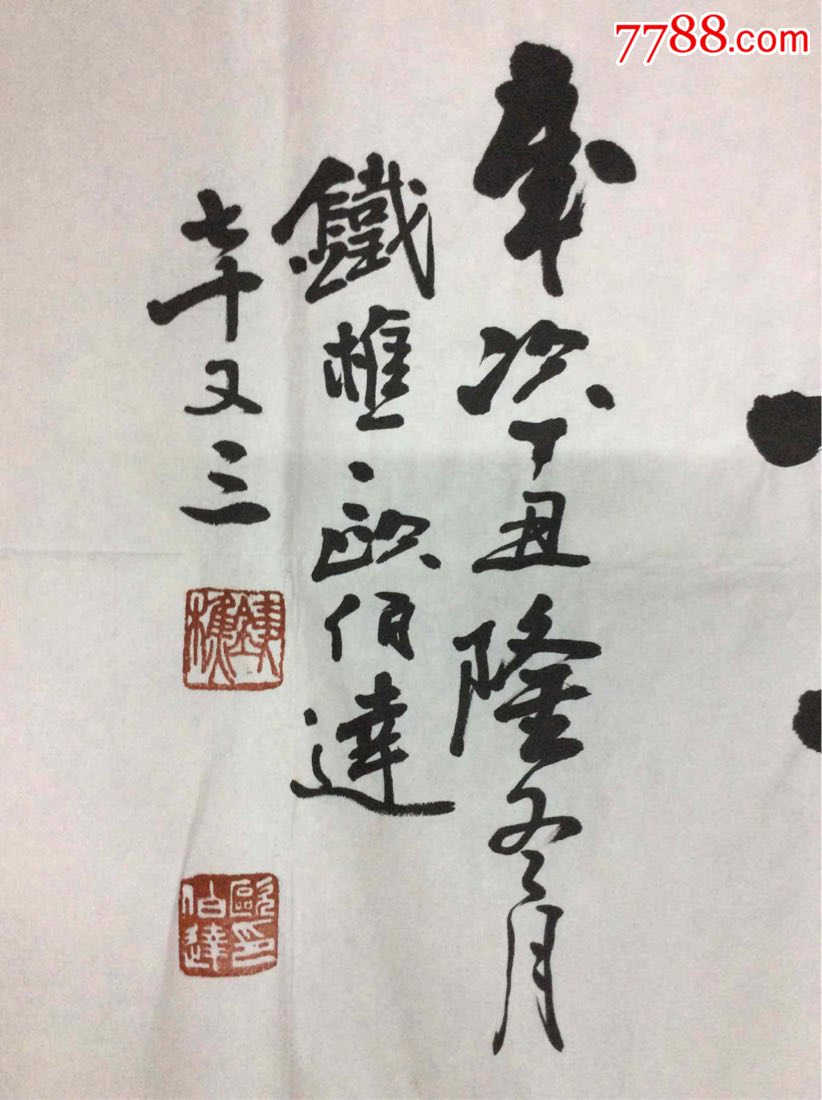 7788.com
歲次丁丑隆冬月
鐵樵歐伯達
七十又三
銕樵
歐印伯達